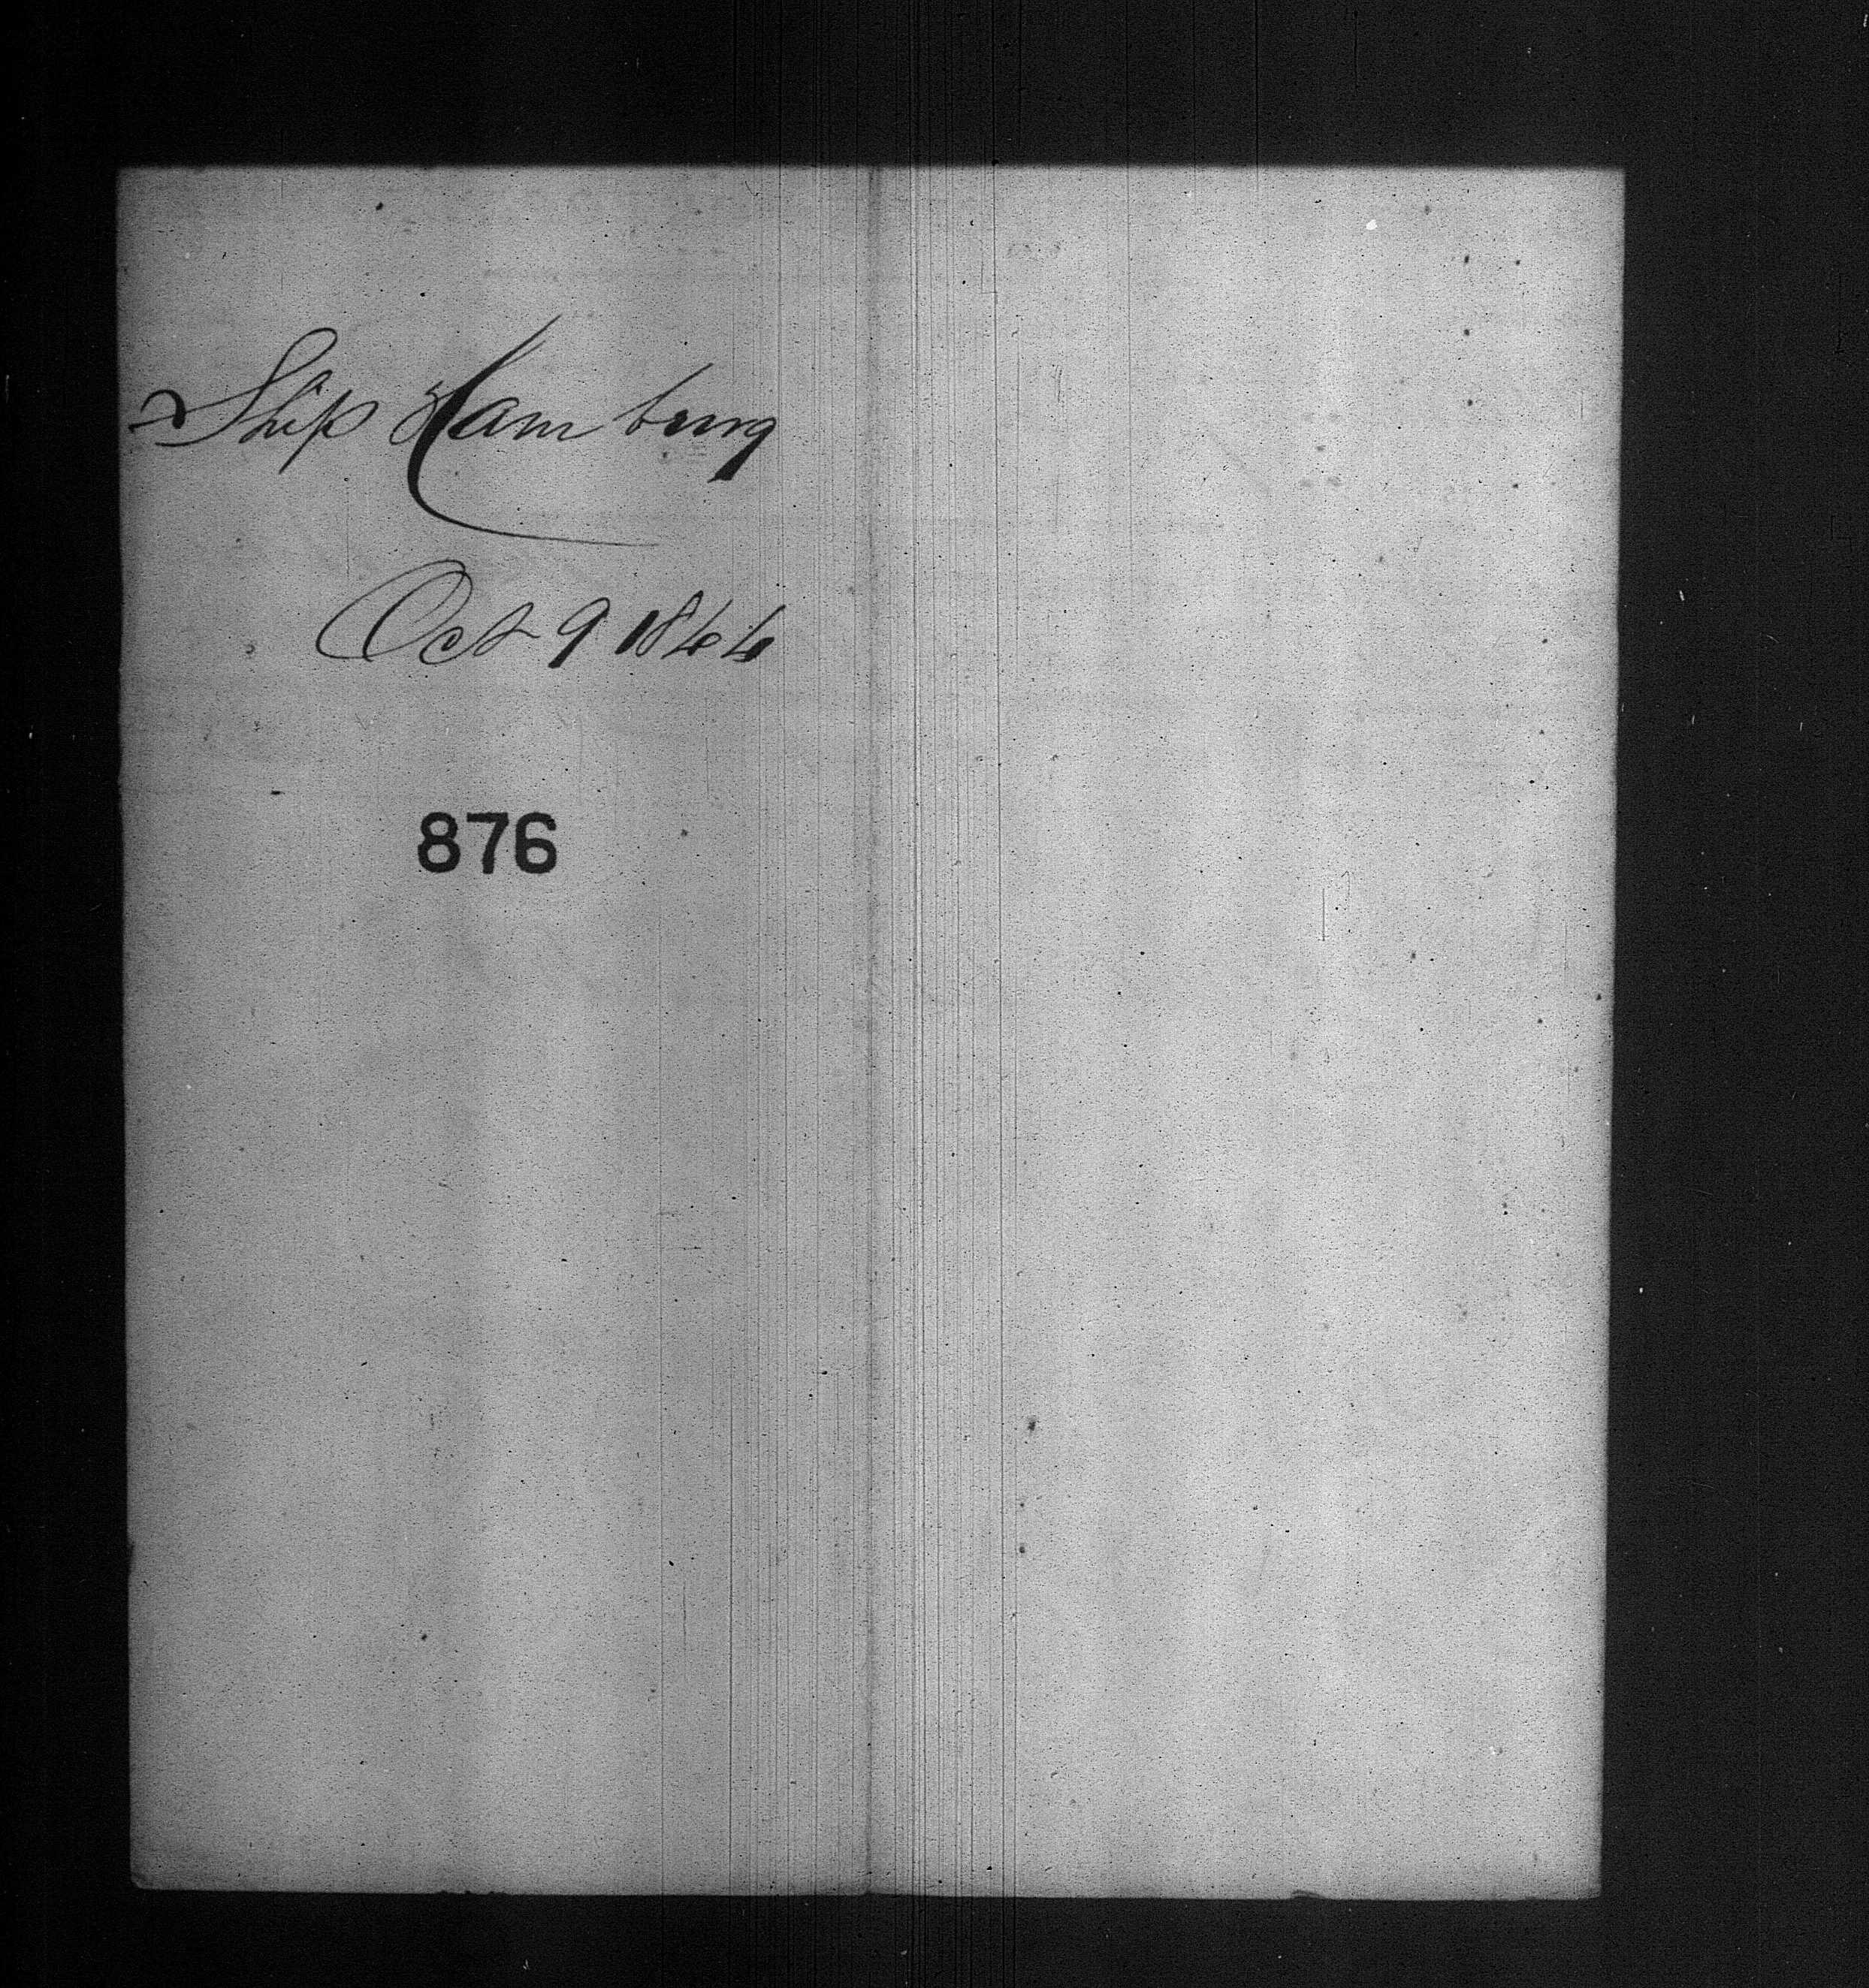 Ship Hamburg
Oct 9 1844
876